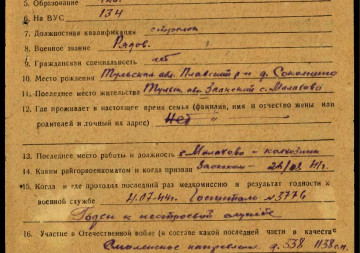 5. Образование
6. На ВУС 134
7. Должностная квалификация стрелок
8. Военное звание Рядов.
9. Гражданская специальность
10. Место рождения Тульская обл. Плавский р-н д.
11. Последнее место жительства Тульск. обл. с. Малахово
12. Где проживает в настоящее время семья (фамилия, имя и отчество жены или
родителей и точный их адрес) Нет
13. Последнее место работы и должность с. Малахово - колхозник
14. Каким райгорвоенкоматом и когда призван
15. Когда и где проходил последний раз медкомиссию и результат годности к
военной службе 4.07.44г. Госпиталь №3776
Годен к нестроевой службе
16. Участие в Отечественной войне (в составе какой последней части в качестве
Смоленское направление д. 338 1138 сп.